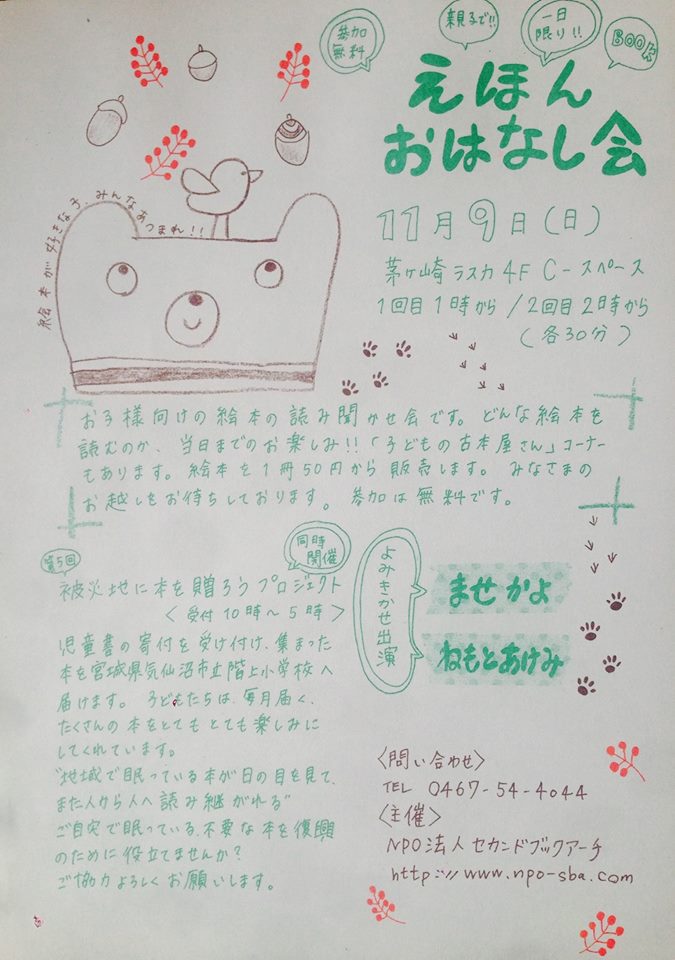 参加
無料
親子で!!
一日
限り!!
BOOK
えほん
おはなし会
絵本が好きな子、みんなあつまれ!!
11月9日(日)
茅ヶ崎ラスカ4F C-スペース
1回目1時から/2回目2時から
(各30分)
お子様向けの絵本の読み聞かせ会です。どんな絵本を
読むのか、当日までのお楽しみ!!「子どもの古本屋さん」コーナー
もあります。絵本を1冊50円から販売します。みなさまの
お越しをお待ちしております。参加は無料です。
第5回
同時
開催
被災地に本を贈ろうプロジェクト
<受付10時~5時>
児童書の寄付を受け付け、集まった
本を宮城県気仙沼市立階上小学校へ
届けます。子どもたちは、毎月届く、
たくさんの本をとてもとても楽しみに
してくれています。
"地域で眠っている本が日の目を見て、
また人から人へ読み継がれる"
ご自宅で眠っている、不要な本を復興
のために役立てませんか?
ご協力よろしくお願いします。
よみきかせ出演
ませかよ
ねもとあけみ
<問い合わせ>
TEL 0467-54-4044
<主催>
NPO法人セカンドブックアーチ
http://www.npo-sba.com